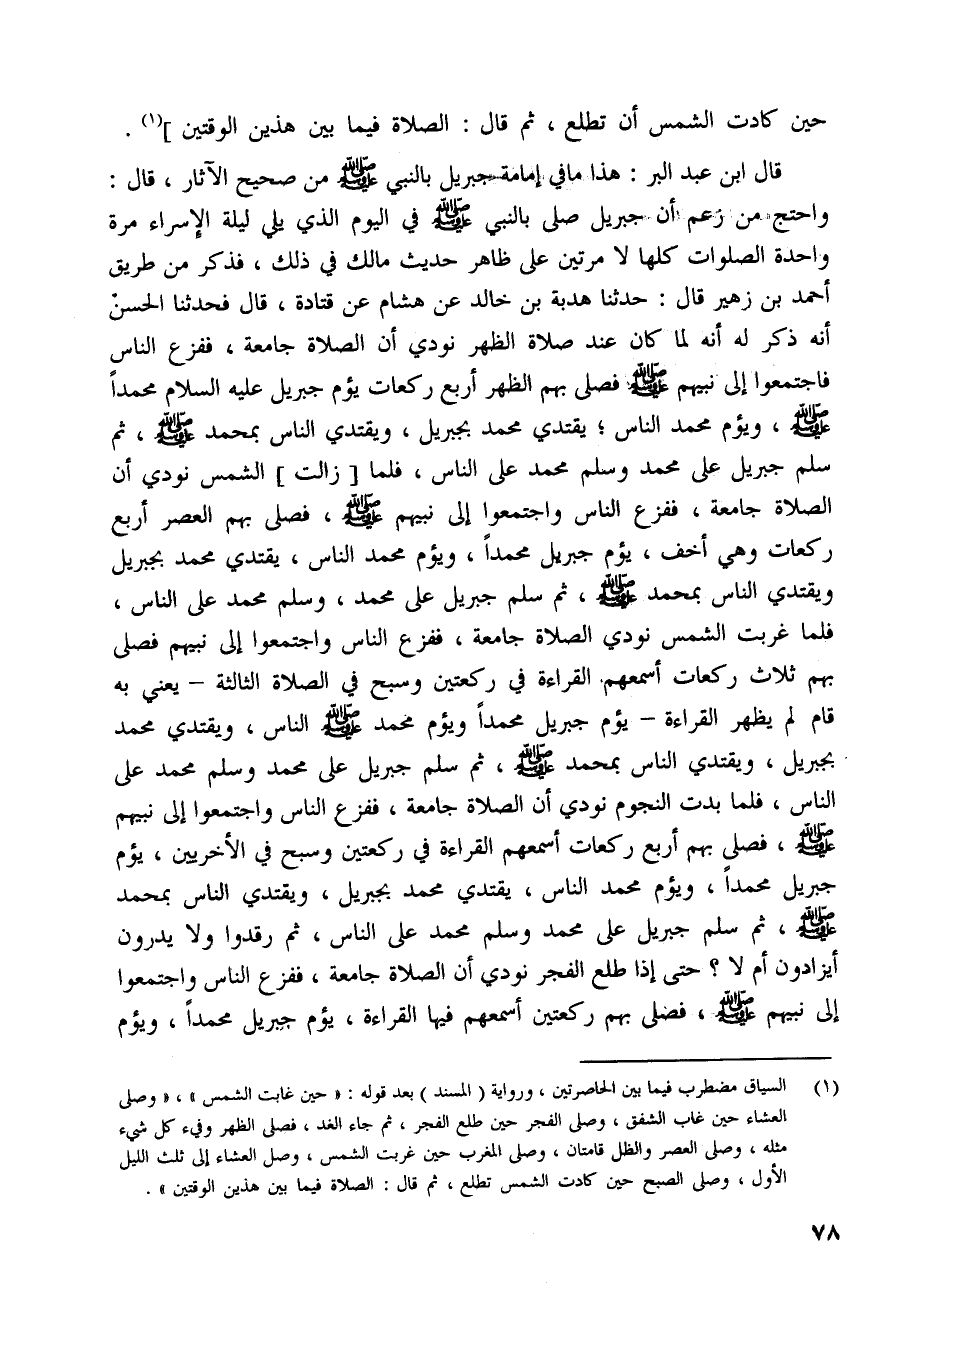 حين كادت الشمس أن تطلع ، ثم قال : الصلاة فيما بين هذين الوقتين ](١) .
قال ابن عبد البر : هذا مافي إمامة جبريل بالنبي ﷺ من صحيح الآثار ، قال :
واحتج من زعم أن جبريل صلى بالنبي ﷺ في اليوم الذي يلي ليلة الإسراء مرة
واحدة الصلوات كلها لا مرتين على ظاهر حديث مالك في ذلك ، فذكر من طريق
أحمد بن زهير قال : حدثنا هدبة بن خالد عن هشام عن قتادة ، قال فحدثنا الحسن
أنه ذكر له أنه لما كان عند صلاة الظهر نودي أن الصلاة جامعة ، ففزع الناس
فاجتمعوا إلى نبيهم ﷺ فصلى بهم الظهر أربع ركعات يؤم جبريل عليه السلام محمداً
ﷺ ، ويؤم محمد الناس ؛ يقتدي محمد بجبريل ، ويقتدي الناس بمحمد ﷺ ، ثم
سلم جبريل على محمد وسلم محمد على الناس ، فلما [ زالت ] الشمس نودي أن
الصلاة جامعة ، ففزع الناس واجتمعوا إلى نبيهم ﷺ ، فصلى بهم العصر أربع
ركعات وهي أخف ، يؤم جبريل محمداً ، ويؤم محمد الناس ، يقتدي محمد بجبريل
ويقتدي الناس بمحمد ﷺ ، ثم سلم جبريل على محمد ، وسلم محمد على الناس ،
فلما غربت الشمس نودي الصلاة جامعة ، ففزع الناس واجتمعوا إلى نبيهم فصلى
بهم ثلاث ركعات أسمعهم القراءة في ركعتين وسبح في الصلاة الثالثة – يعني به
قام لم يظهر القراءة – يؤم جبريل محمداً ويؤم محمد ﷺ الناس ، ويقتدي محمد
بجبريل ، ويقتدي الناس بمحمد ﷺ ، ثم سلم جبريل على محمد وسلم محمد على
الناس ، فلما بدت النجوم نودي أن الصلاة جامعة ، ففزع الناس واجتمعوا إلى نبيهم
ﷺ ، فصلى بهم أربع ركعات أسمعهم القراءة في ركعتين وسبح في الأخريين ، يؤم
جبريل محمداً ، ويؤم محمد الناس ، يقتدي محمد بجبريل ، ويقتدي الناس بمحمد
ﷺ ، ثم سلم جبريل على محمد وسلم محمد على الناس ، ثم رقدوا ولا يدرون
أيزادون أم لا ؟ حتى إذا طلع الفجر نودي أن الصلاة جامعة ، ففزع الناس واجتمعوا
إلى نبيهم ﷺ ، فصلى بهم ركعتين أسمعهم فيها القراءة ، يؤم جبريل محمداً ، ويؤم
(١) السياق مضطرب فيما بين الحاصرتين ، ورواية ( المسند ) بعد قوله : « حين غابت الشمس » ، « وصلى
العشاء حين غاب الشفق ، وصلى الفجر حين طلع الفجر ، ثم جاء الغد ، فصلى الظهر وفيء كل شيء
مثله ، وصلى العصر والظل قامتان ، وصلى المغرب حين غربت الشمس ، وصل العشاء إلى ثلث الليل
الأول ، وصلى الصبح حين كادت الشمس تطلع ، ثم قال : الصلاة فيما بين هذين الوقتين » .
٧٨